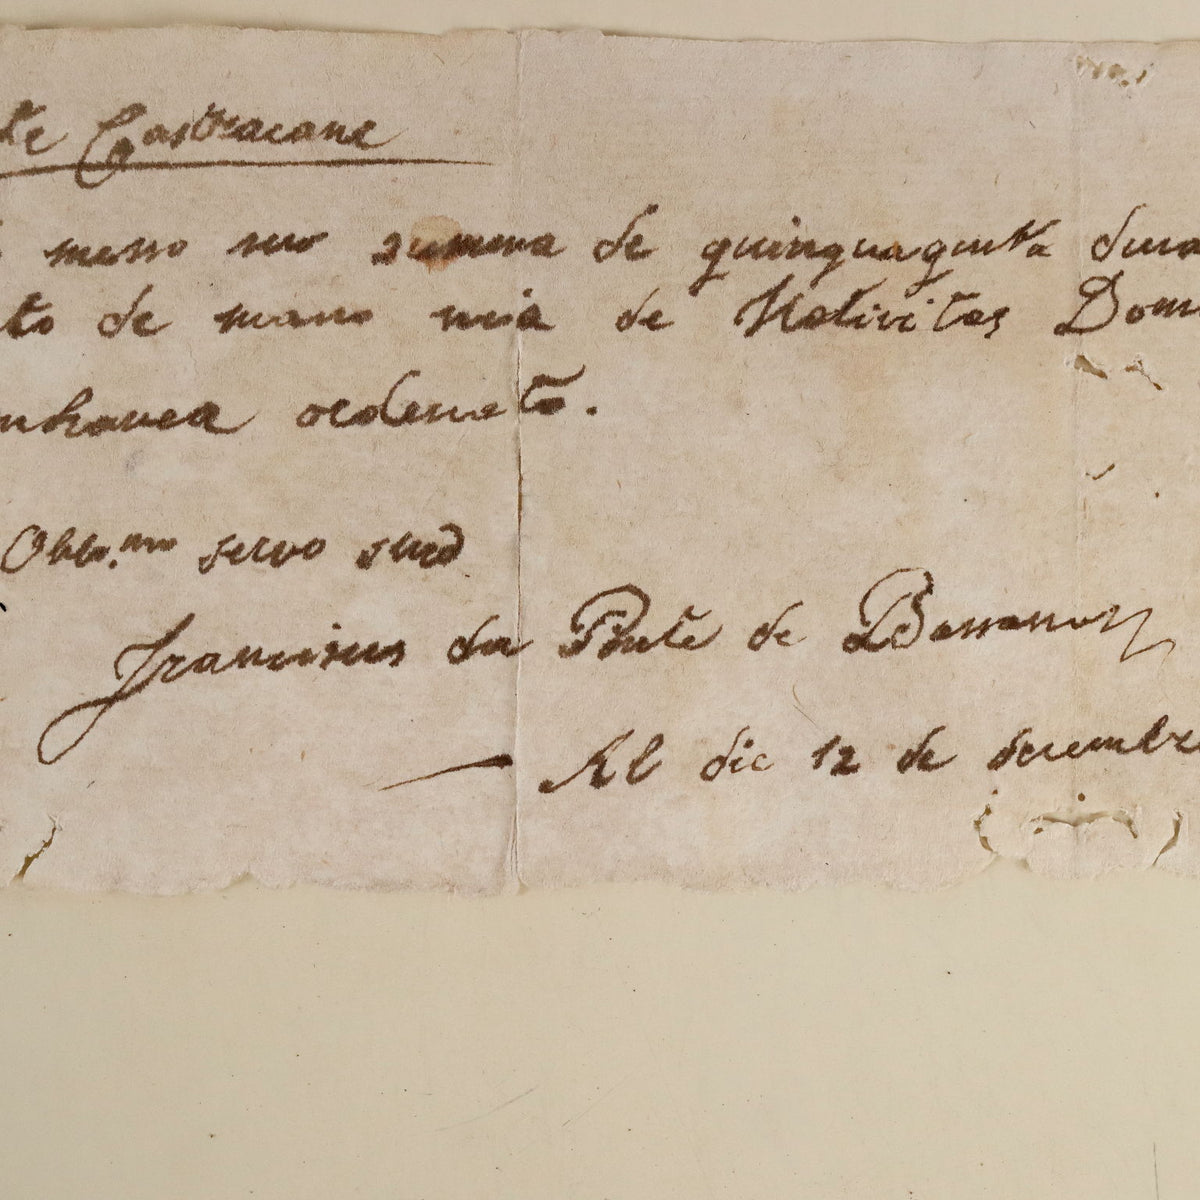 te Castracane
messo suo summa de quinquaginta duca
to de mano mia de Nativitas Dom
ordenato.
Obbo.mo servo suo
Franciscus da Ponte de Bassano
Al die 12 de decembr